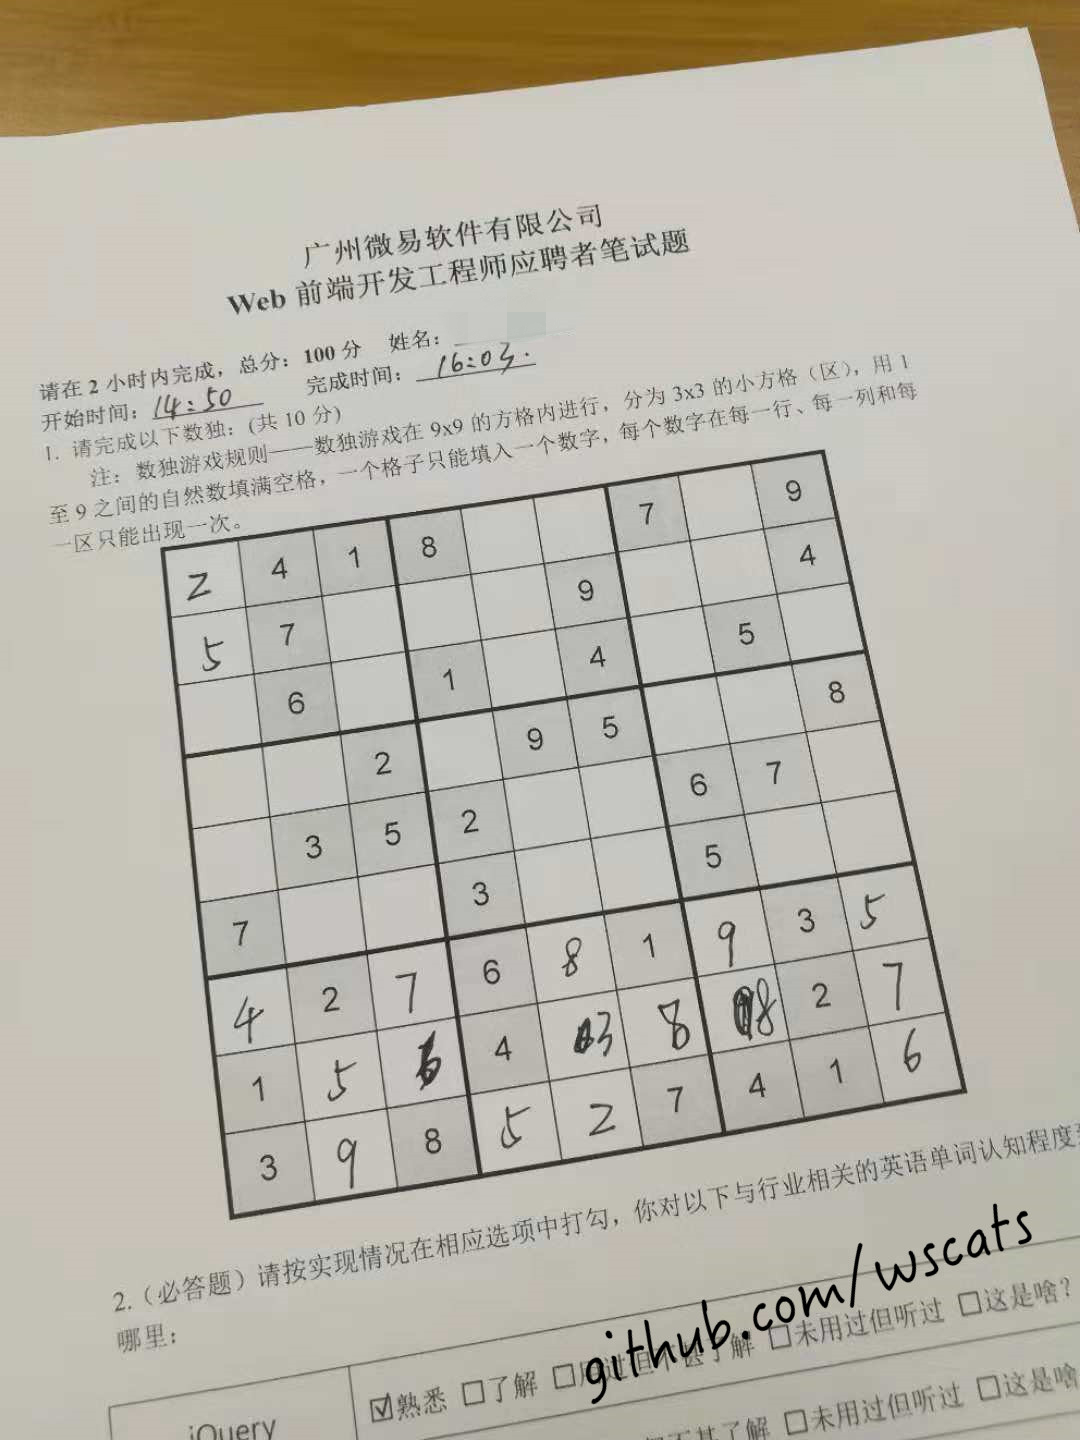 广州微易软件有限公司
Web 前端开发工程师应聘者笔试题
请在 2 小时内完成，总分：100 分 姓名：
开始时间：14:50 完成时间：16:03.
1. 请完成以下数独：(共 10 分)
注：数独游戏规则——数独游戏在 9x9 的方格内进行，分为 3x3 的小方格（区），用 1
至 9 之间的自然数填满空格，一个格子只能填入一个数字，每个数字在每一行、每一列和每
一区只能出现一次。
2 4 1 8 7 9
5 7 9 4
6 1 4 5
2 9 5 8
3 5 2 6 7
7 3 5
4 2 7 6 8 1 9 3 5
1 5 6 4 3 8 8 2 7
3 9 8 5 2 7 4 1 6
2.（必答题）请按实现情况在相应选项中打勾，你对以下与行业相关的英语单词认知程度
哪里：
jQuery ☑熟悉 □了解 □用过但不甚了解 □未用过但听过 □这是啥？
不甚了解 □未用过但听过 □这是啥
github.com/wscats